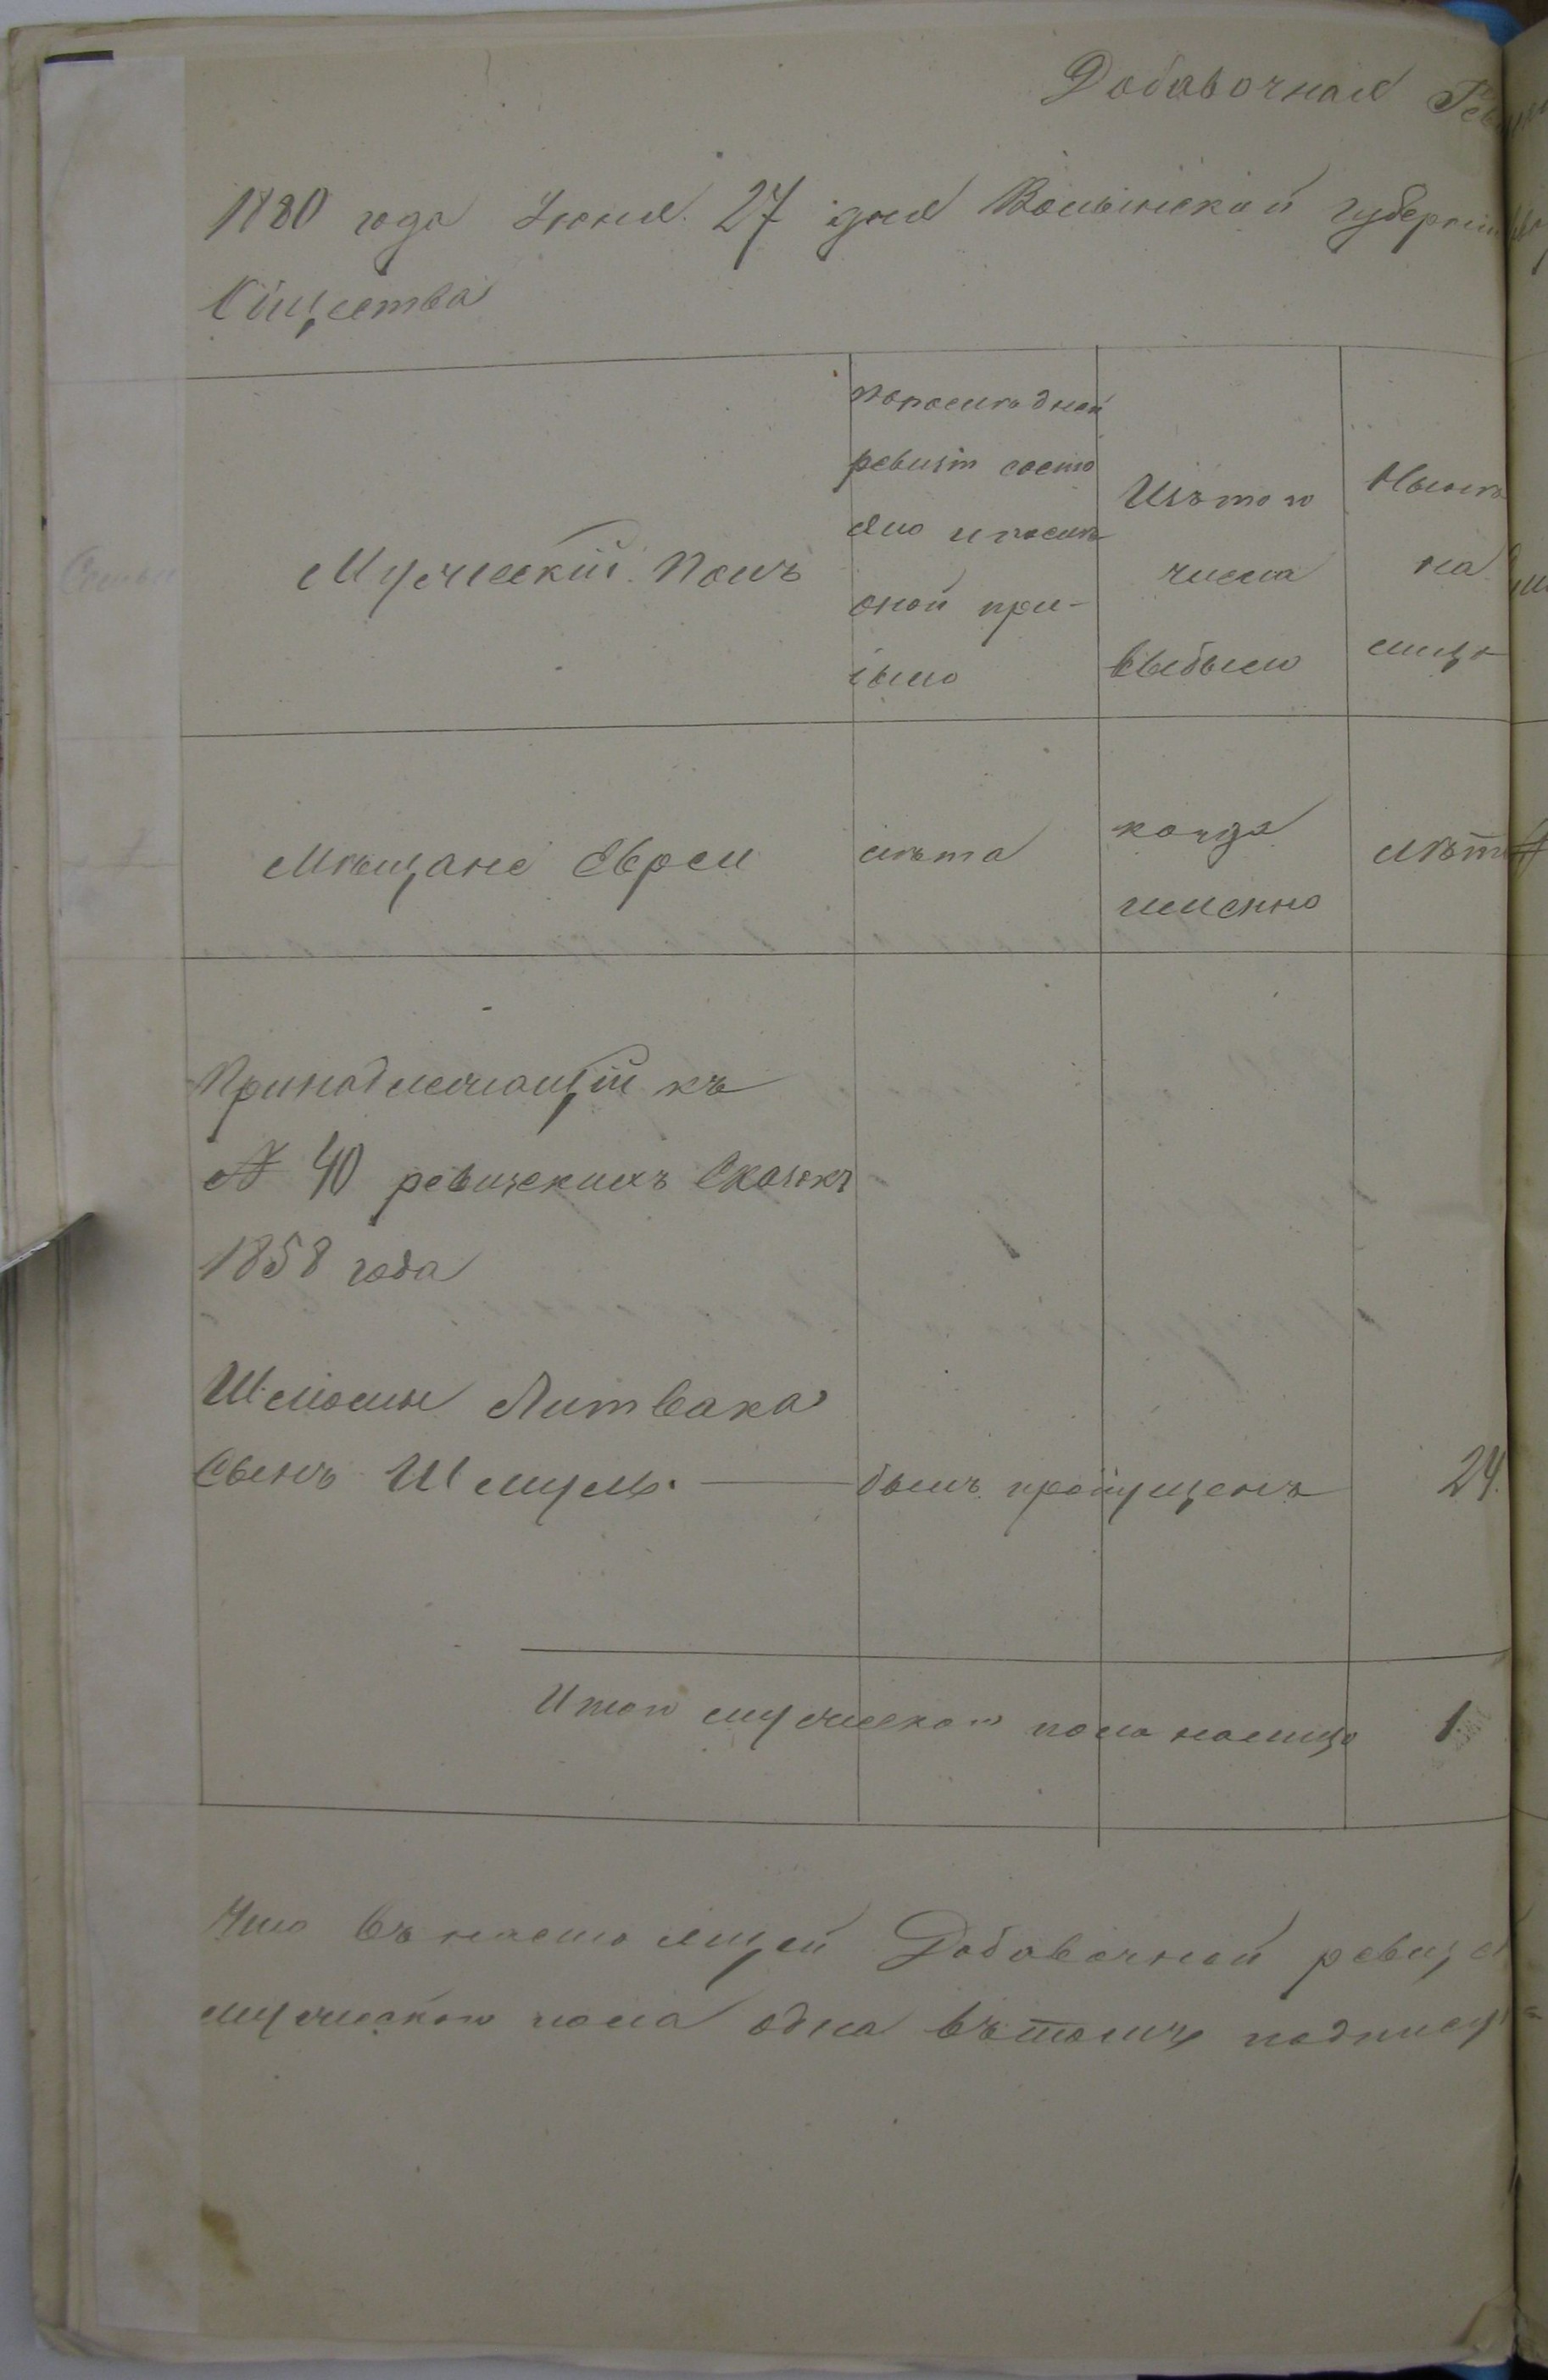 Добавочная Рев
1880 года Июня 27 дня Волынской губернiи
Общества
Семьи
Мужескій Полъ
по послѣдней
ревизіи состо
яло и послѣ
оной при-
было
Изъ того
числа
выбыло
Нынѣ
на
лицо
1
Мѣщане Евреи
лѣта
когда
именно
лѣта
Принадлежащій къ
№ 40 ревизскихъ Сказкъ
1858 года
Шлиомы Литвака
Сынъ Шмуль. былъ пропущенъ 24.
Итого мужеского пола налицо 1
Что въ настоящей Добавочной ревиз
мужеского пола одна въ томъ подпису